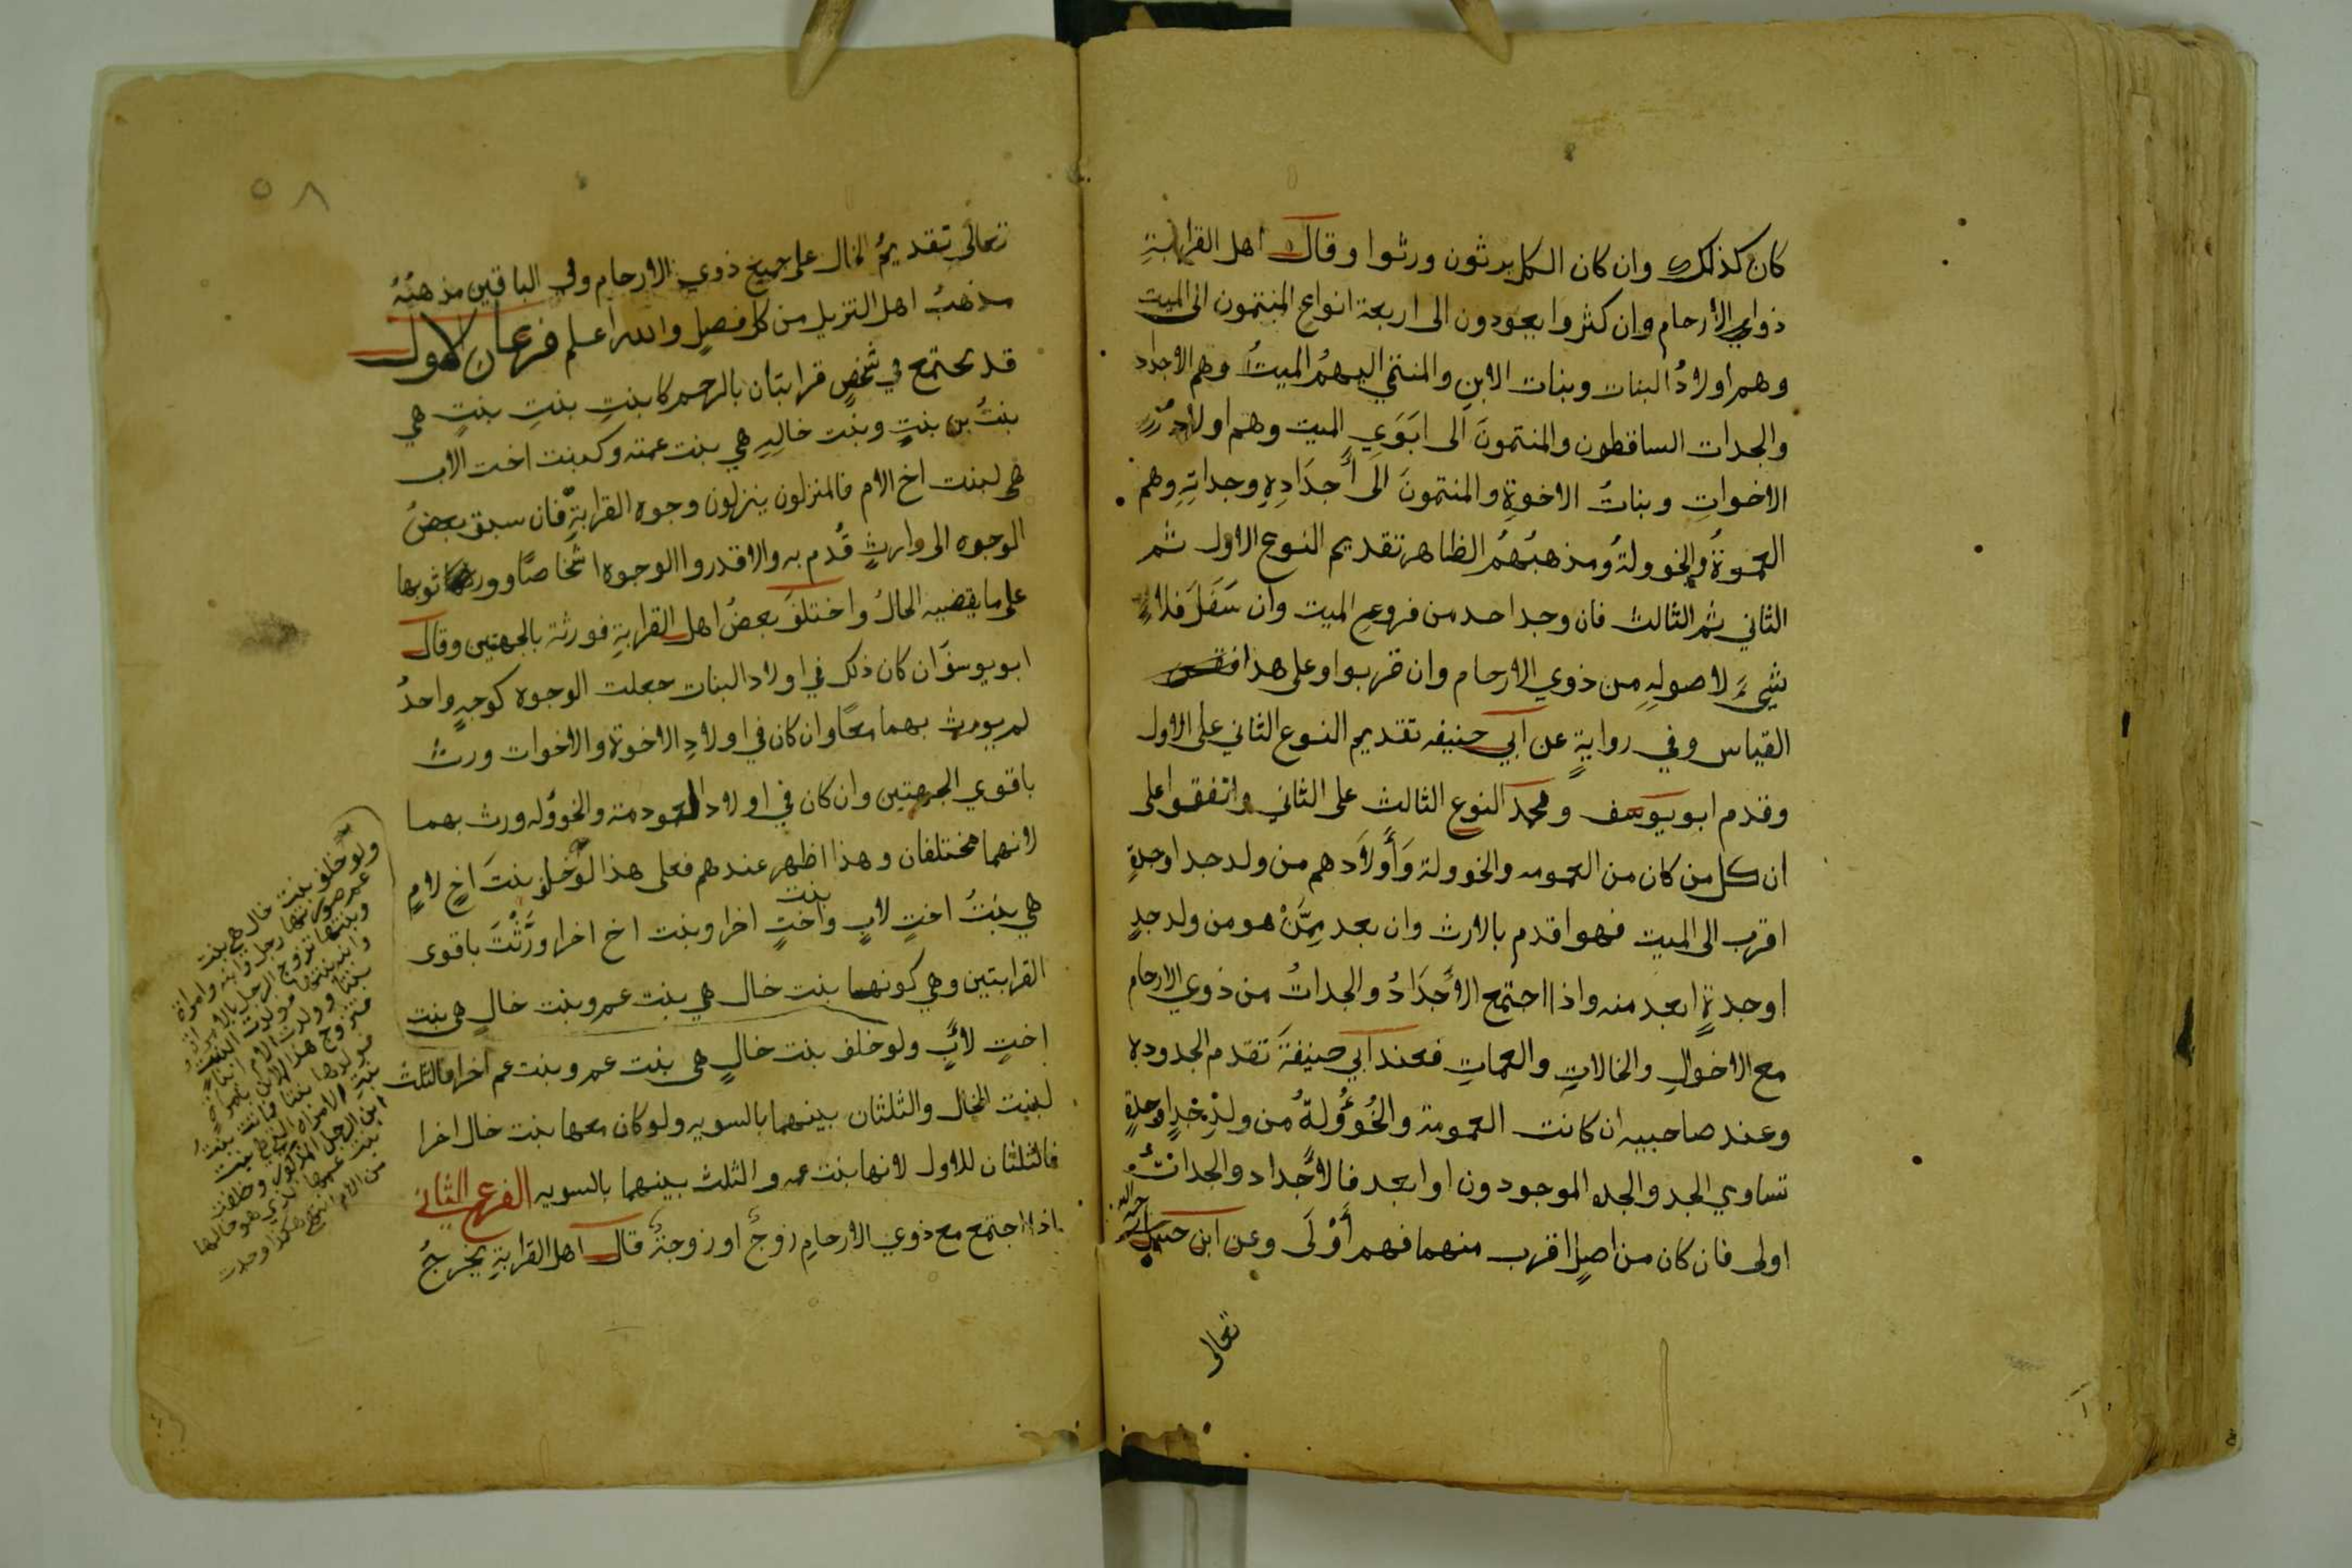 كان كذلك وان كان الكل يرثون ورثوا وقال اهل القرابة
ذواي الأرحام وان كثروا يعودون الى اربعة انواع المنتمون الى الميت
وهم اولادُ البنات وبنات الابن والمنتمي اليهمُ الميتُ وهم الاجداد
والجدات الساقطون والمنتمونَ الى ابَوَيِ الميت وهم اولاد
الاخواتِ وبناتُ الاخوةِ والمنتمونَ الَى أجدَادِهِ وجداتِهِ وهم
العمُومَةُ والخوولةُ ومذهبُهُمُ الظاهر تقديم النوع الاول ثم
الثاني ثم الثالث فان وجد احد من فروعِ الميت وان سَفَلَ فلا
شيءَ لاصولِهِ من ذوي الارحام وان قربوا وعلى هذا
القياس وفي روايةٍ عن ابي حنيفه تقديم النوع الثاني على الاول
وقدم ابو يوسف ومحمد النوع الثالث على الثاني واتفقوا على
ان كل من كان من العمومه والخوولة وَأولاَدهم من ولد جد اوجدةٍ
اقرب الى الميت فهو اقدم بالارث وان بعد مِمَّنْ هو من ولد جدٍ
اوجدةٍ ابعد منه واذا اجتمع الأجدَادُ والجداتُ من ذوي الارحام
مع الاخوالِ والخالاتِ والعماتِ فعند ابي حنيفةَ تقدم الجدوده
وعند صاحبيه ان كانت العمومة والخُوُولةُ من ولدِ جدٍ اوجدةٍ
تساوي الجد والجده الموجودون او ابعد فالأجداد والجداتُ
اولى فان كان من اصلٍ اقرب منهما فهم أَوْلَى وعن ابن حنبل رحمه الله
تعالى
٥٨
تعالَى تقديمُ الخال على جميع ذوي الارحام وفي الباقين مذهبُهُ
مذهبُ اهل التنزيل من كل فصلٍ والله اعلم فرعان الاول
قد يجتمع في شخصٍ قرابتان بالرحم كابنتِ بنتِ بنتٍ هي
بنتُ بن بنتٍ وبنت خالِهِ هي بنت عمته وكبنت اخت الاب
هي لبنت اخ الام فالمنزلون ينزلون وجوه القرابةِ فان سبق بعضُ
الوجوه الى وارثٍ قُدم به والا قدروا الوجوه اشخاصًا وورثوا بها
على ما يقضيه الحالُ واختلفَ بعضُ اهل القرابةِ فورثة بالجهتين وقال
ابو يوسفَ ان كان ذلك في اولاد البنات جعلت الوجوه كوجهٍ واحدٌ
لم يورث بهما معًا وان كان في اولادِ الاخوة والاخوات ورث
باقوي الجهتين وان كان في اولاد العمومة والخووله ورث بهما
لانهما مختلفان وهذا اظهر عندهم فعلى هذا لو خلف بنتَ اخٍ لامٍ
هي بنتُ اختٍ لابٍ وبنت اختٍ اخرا وبنت اخ اخرا ورَّثْتَ باقوى
القرابتين وهي كونها بنت خال هي بنت عم وبنت خالٍ هي بنت
اختٍ لأبٍ ولو خلف بنت خالٍ هي بنت عم وبنت عم اخرا فالثلث
لبنت الخال والثلثان بينهما بالسويه ولو كان معها بنت خال اخرا
فالثلثان للاول لانها بنت عم والثلث بينهما بالسويه الفرع الثاني
اذا اجتمع مع ذوي الارحامِ زوجٌ او زوجةٌ قال اهل القرابةِ يخرجُ
ولو خلف بنت خال هي بنت
عم صورتها رجل وابنه وامراة
وبنتها تزوج الرجل
بنت عمها الذي هو خالها